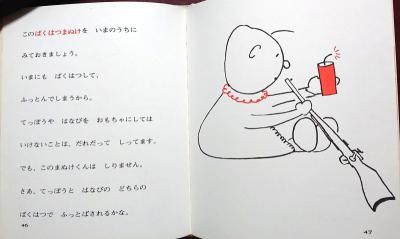 このばくはつまぬけを いまのうちに
みておきましょう。
いまにも ばくはつして、
ふっとんでしまうから。
てっぽうや はなびを おもちゃにしては
いけないことは、だれだって しってます。
でも、このまぬけくんは しりません。
さあ、てっぽうと はなびの どちらの
ばくはつで ふっとばされるかな。
46
47